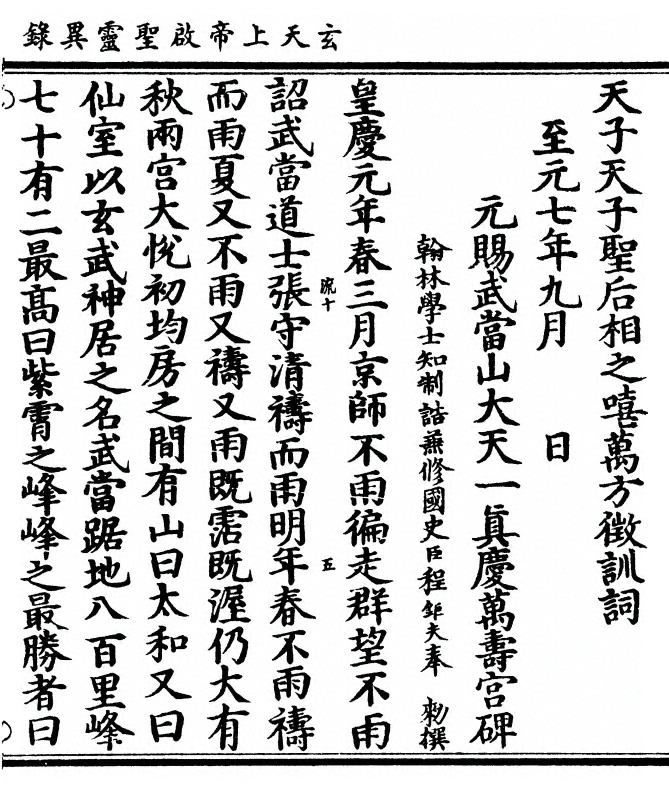 玄天上帝啟聖靈異錄
天子天子聖后相之嘻萬方徵訓詞
至元七年九月　日
元賜武當山大天一真慶萬壽宮碑
翰林學士知制誥兼修國史臣程鉅夫奉　勑撰
皇慶元年春三月京師不雨徧走群望不雨
流十　五
詔武當道士張守清禱而雨明年春不雨禱
而雨夏又不雨又禱又雨既霑既渥仍大有
秋兩宮大悅初均房之間有山曰太和又曰
仙室以玄武神居之名武當踞地八百里峰
七十有二最高曰紫霄之峰峰之最勝者曰